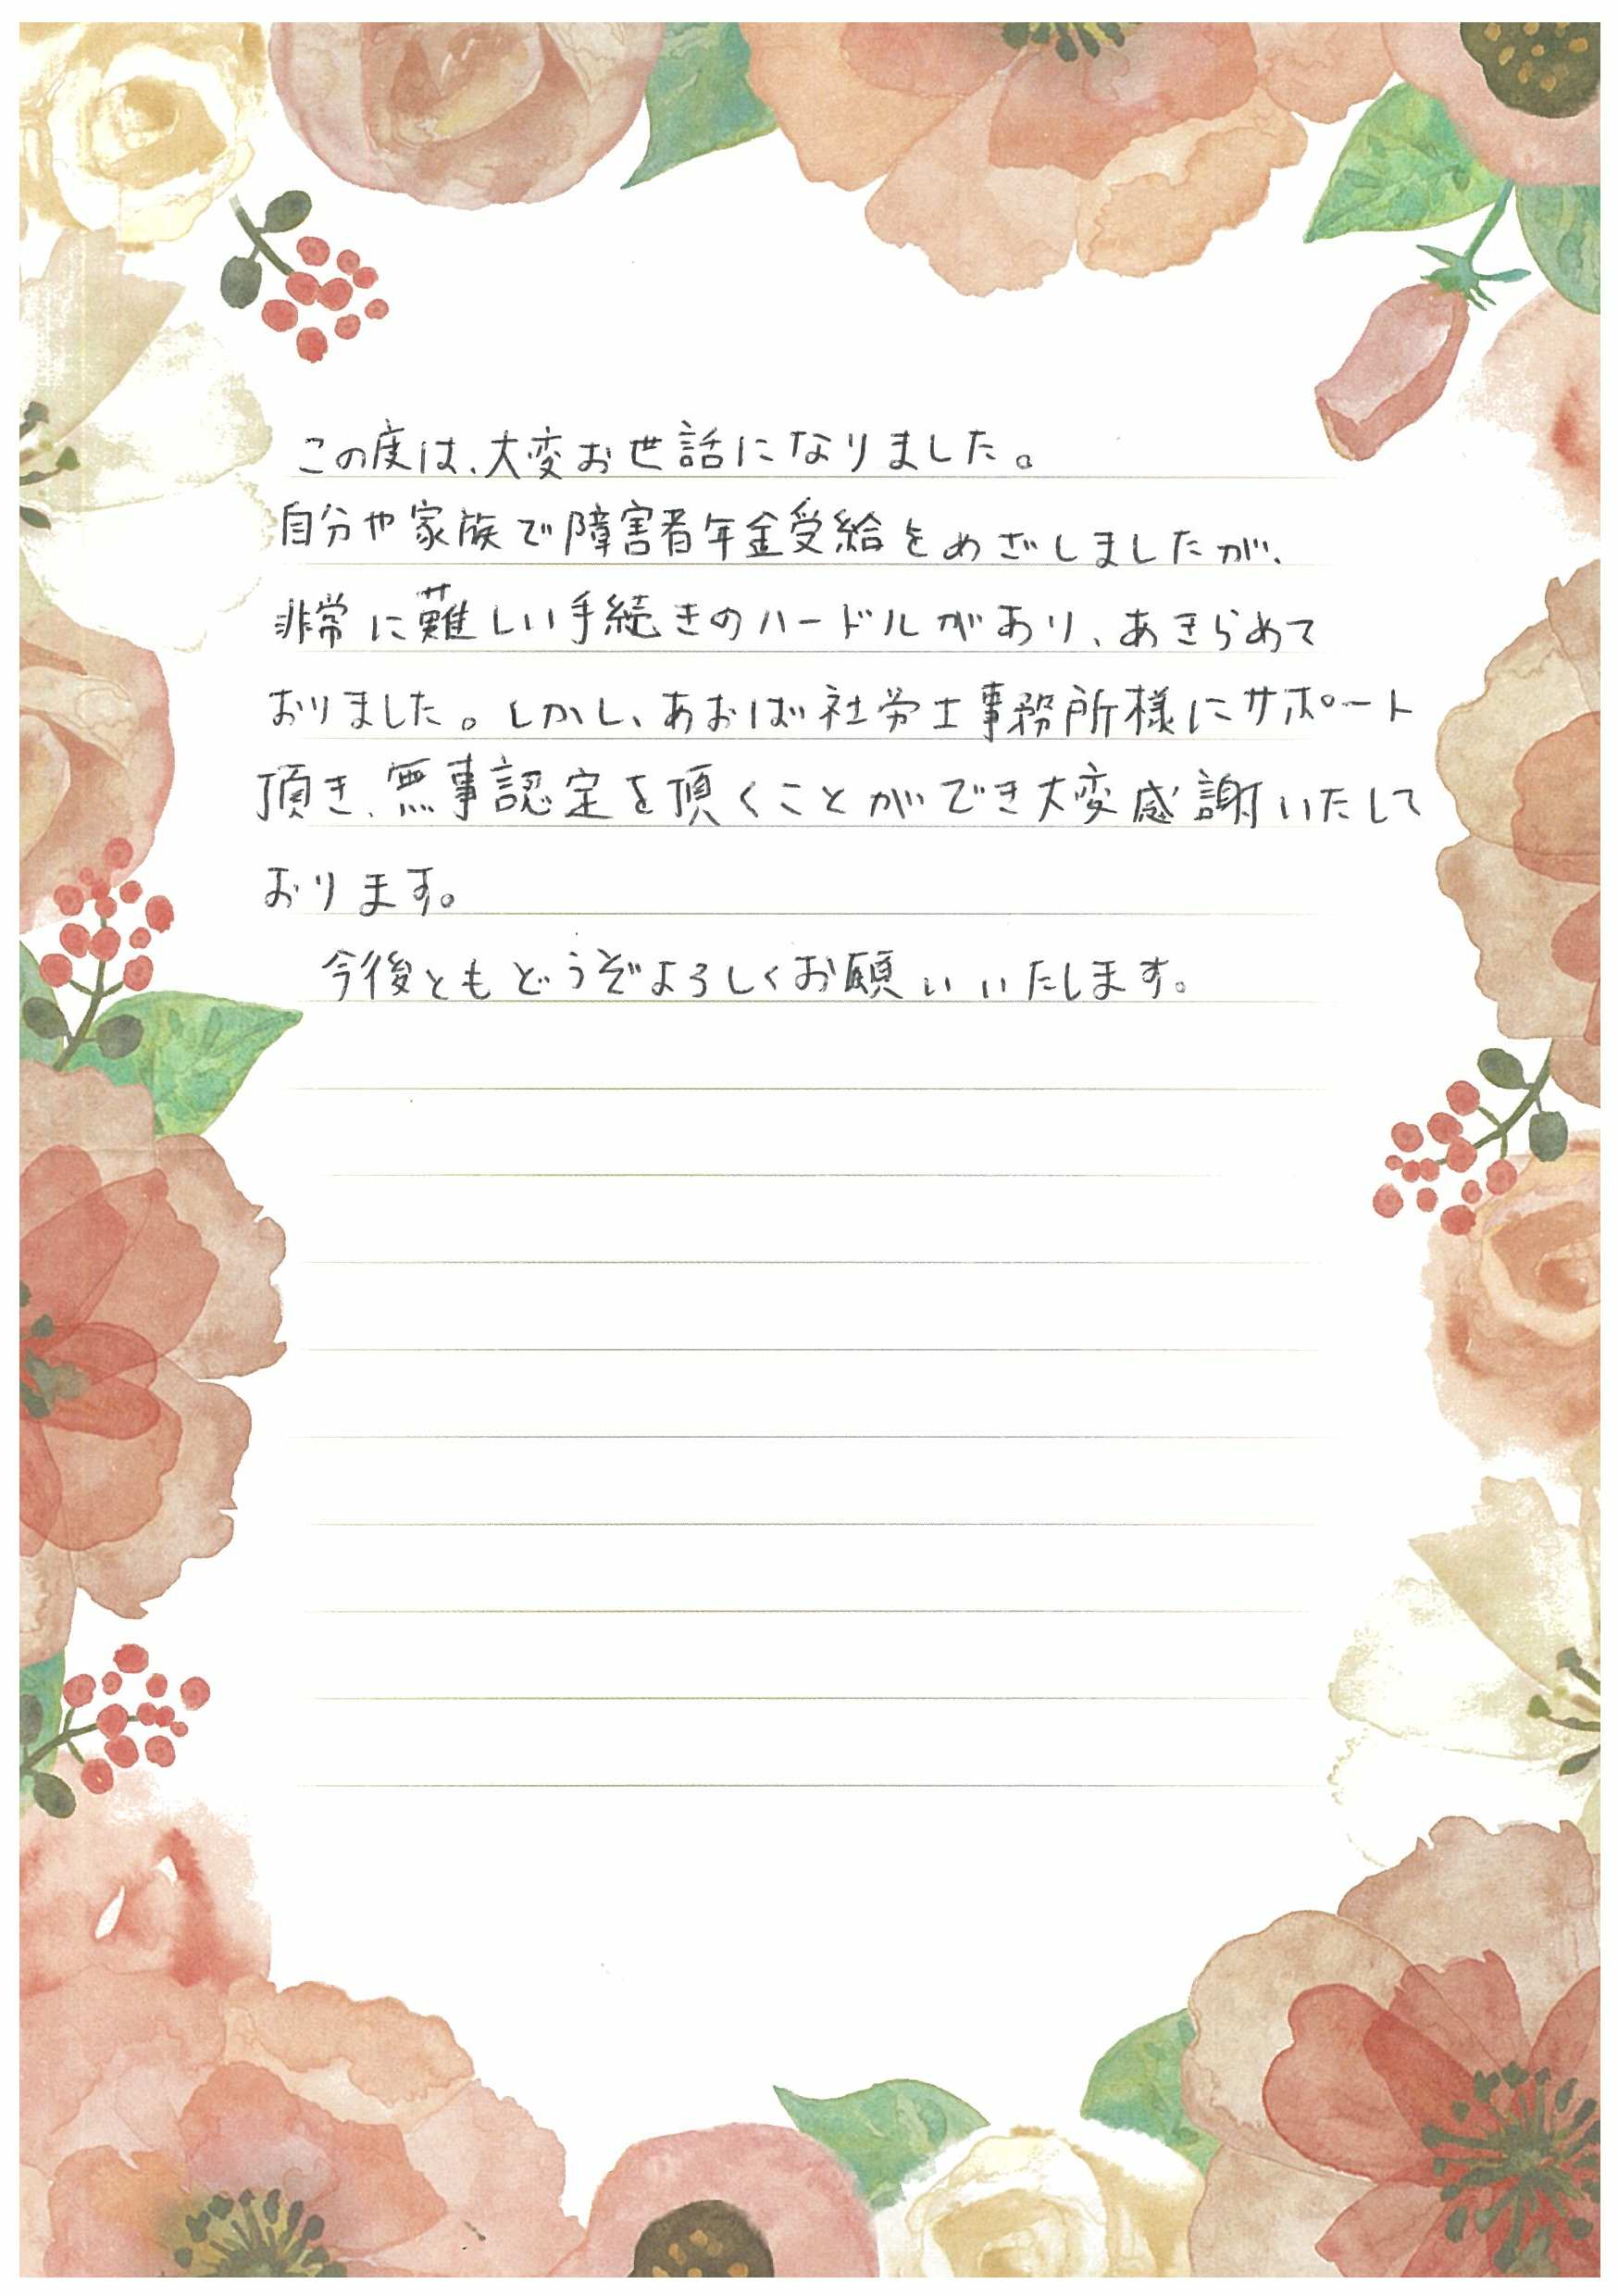 この度は、大変お世話になりました。
自分や家族で障害者年金受給をめざしましたが、
非常に難しい手続きのハードルがあり、あきらめて
おりました。しかし、あおば社労士事務所様にサポート
頂き、無事認定を頂くことができ大変感謝いたして
おります。
今後ともどうぞよろしくお願いいたします。